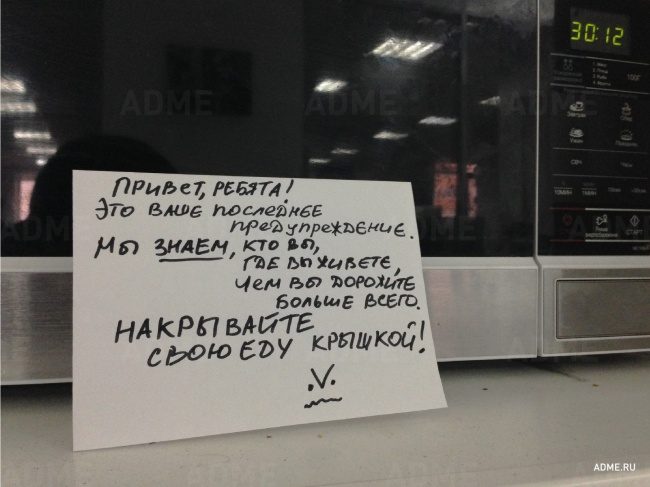 ПРИВЕТ, РЕБЯТА!
ЭТО ВАШЕ ПОСЛЕДНЕЕ
ПРЕДУПРЕЖДЕНИЕ.
МЫ ЗНАЕМ, КТО ВЫ,
ГДЕ ВЫ ЖИВЕТЕ,
ЧЕМ ВЫ ДОРОЖИТЕ
БОЛЬШЕ ВСЕГО.
НАКРЫВАЙТЕ
СВОЮ ЕДУ КРЫШКОЙ!
.V.
30:12
100Г
СВЧ
СТАРТ
ADME
ADME
ADME
ADME.RU